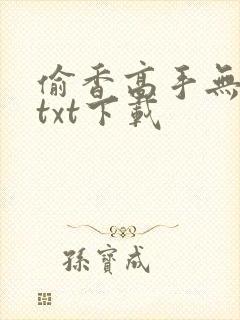 偷香高手無
txt下載
孫寶成